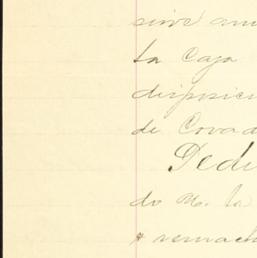 sirve
la Caja
disposici
de Covad
Pedi
do M. la
remach